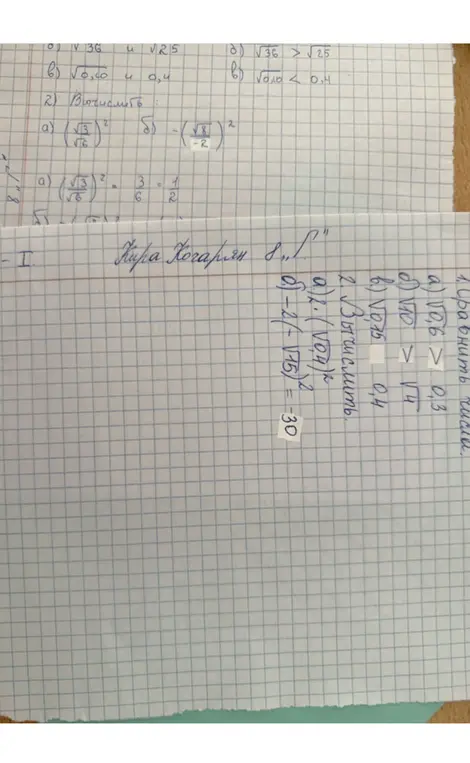 б) √36 и √25 б) √36 > √25
в) √0,10 и 0,4 в) √0,10 < 0,4
2) Вычислить
а) (√3/√6)² б) -(√8/-2)²
а) (√3/√6)² = 3/6 = 1/2
- I. Кира Кочарян 8 „Г"
1. Сравнить числа.
а) √0,6 > 0,3
б) √10 > √4
0,4
2 Вычислить.
а) 2·(√0,4)²
б) -2(-√15)² = -30